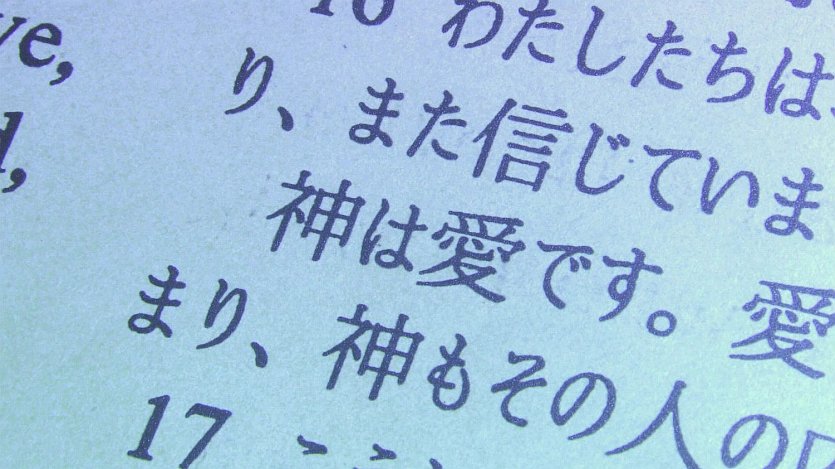 ve,
d,
16 わたしたちは
り、また信じていま
神は愛です。 愛
まり、神もその人の
17